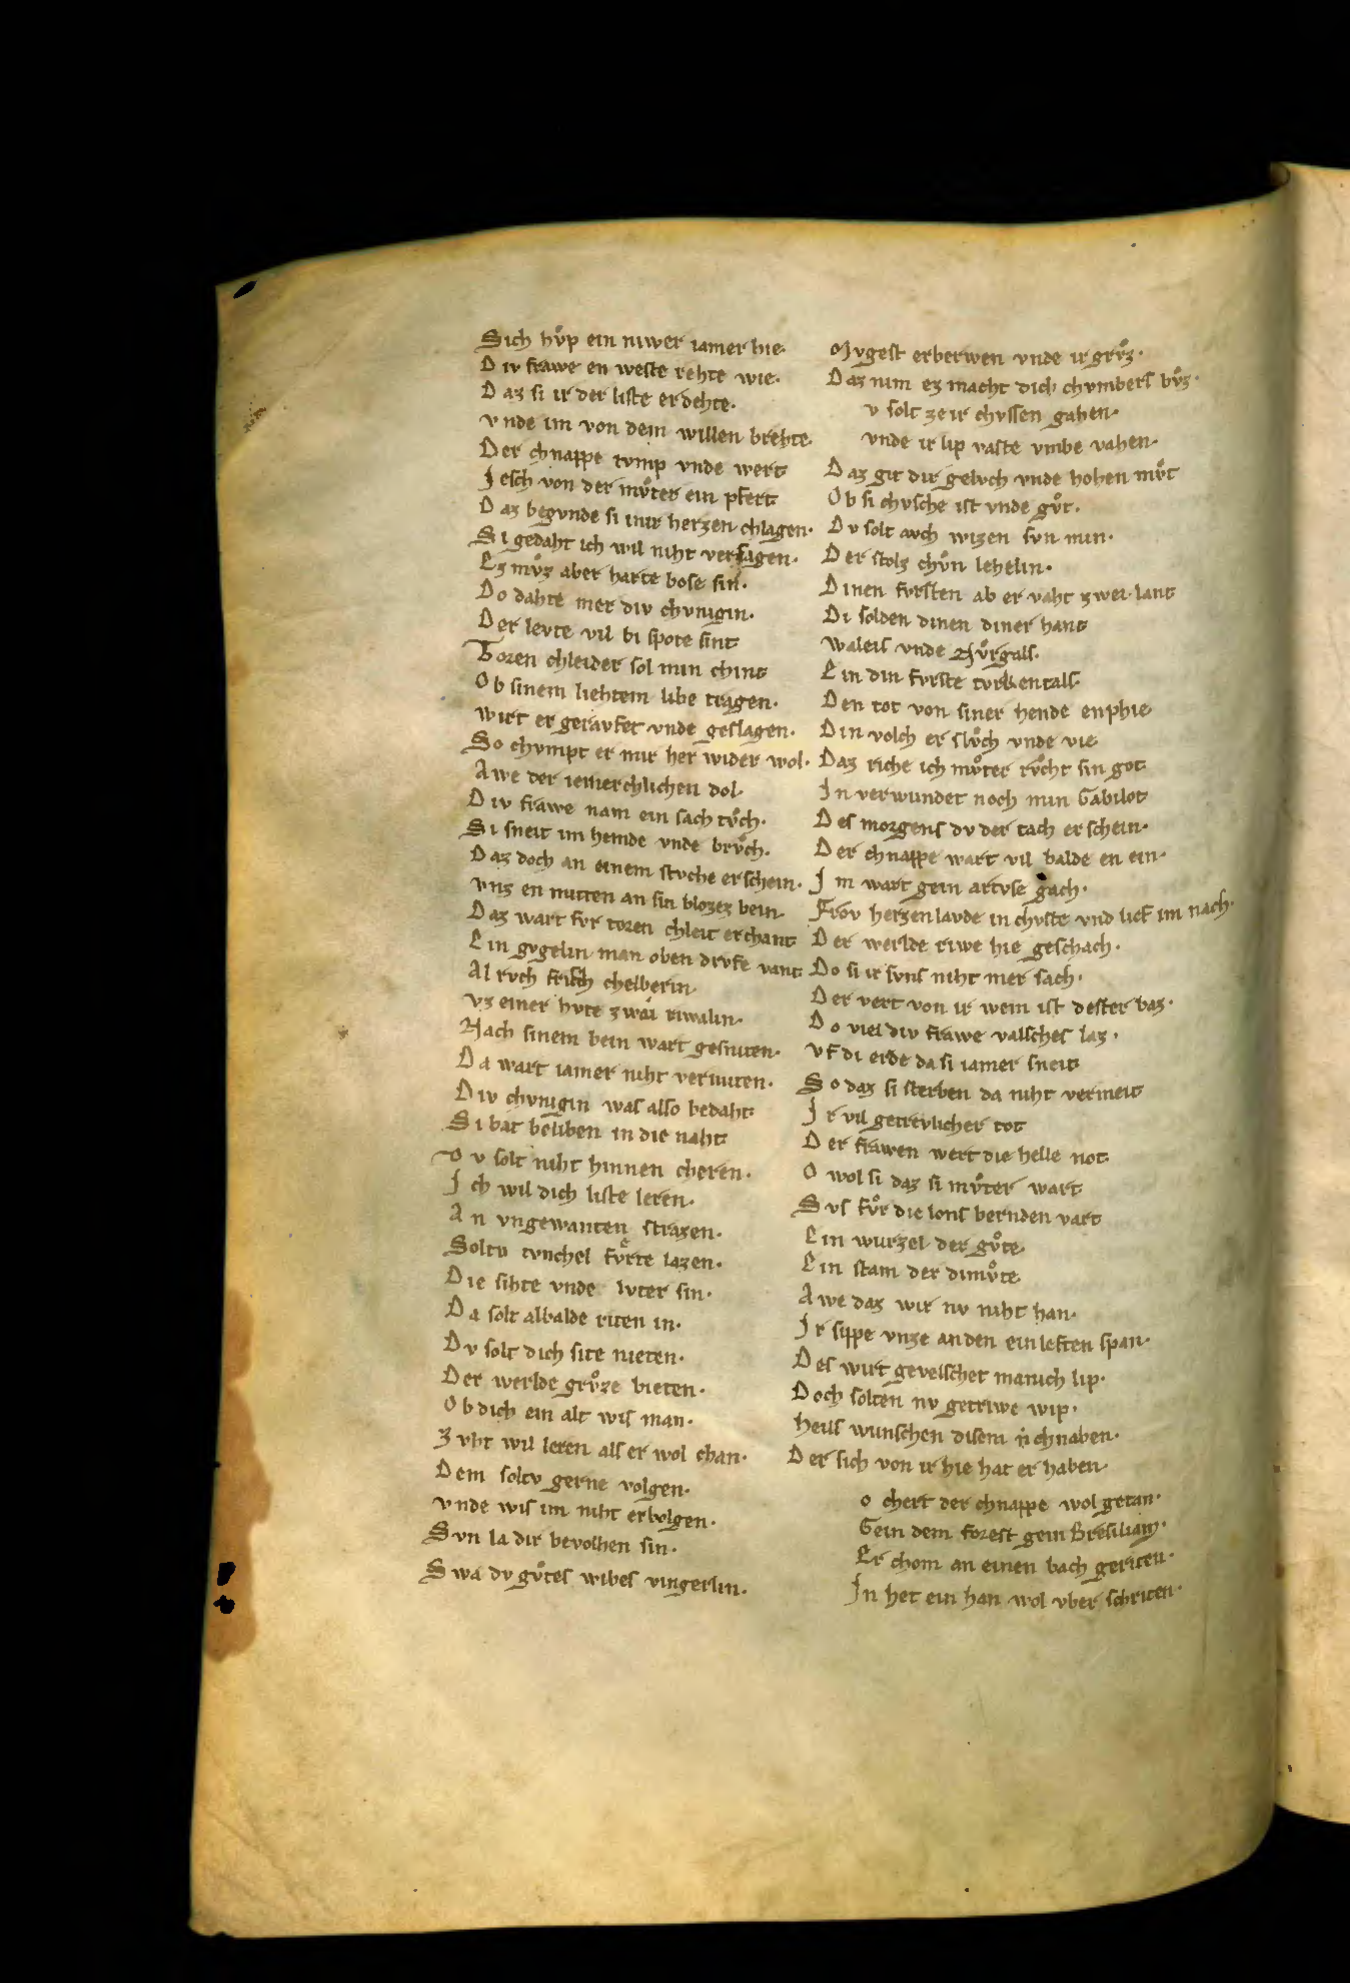 Sich hůp ein niwer iamer hie·
Div frawe en weste rehte wie·
Daz si ir der liste erdehte·
vnde im von dem willen brehte·
Der chnappe tvmp vnde wert
Iesch von der můter ein pfert
Daz begvnde si inir herzen chlagen·
Si gedaht ich wil niht versagen·
Ez můz aber harte bose sin·
Do dahte mer div chvnigin·
Der levte vil bi spote sint
Toren chleider sol min chint
Ob sinem liehtem libe tragen·
wirt er geravfet vnde geslagen·
So chvmpt er mir her wider wol·
Awe der iemerchlichen dol·
Div frawe nam ein sach tůch·
Si sneit im hemde vnde brůch·
Daz doch an einem stvche erschein·
vnz en mitten an sin blozez bein·
Daz wart fvr toren chleit erchant
Ein gvgelin man oben drvfe vant
Al rvch frisch chelberin·
vz einer hvte zwai riwalin·
Nach sinem bein wart gesniten·
Da wart iamer niht vermiten·
Div chvnigin was also bedaht
Si bat beliben in die naht
Dv solt niht hinnen cheren·
Ich wil dich liste leren·
An vngewanten strazen·
Soltu tvnchel fvrte lazen·
Die sihte vnde lvter sin·
Da solt albalde riten in·
Dv solt dich site nieten·
Der werlde grůze bieten·
Ob dich ein alt wis man·
Zvht wil leren als er wol chan·
Dem soltv gerne volgen·
vnde wis im niht erbolgen·
Svn la dir bevolhen sin·
Swa dv gůtes wibes vingerlin·
Mvgest erberwen vnde ir grůz·
Daz nim ez macht dich chvmbers bůz·
v solt ze ir chvssen gahen·
vnde ir lip vaste vmbe vahen·
Daz git dir gelvch vnde hohen můt
Ob si chvsche ist vnde gůt·
Dv solt avch wizen svn min·
Der stolz chůn lehelin·
Dinen fvrsten ab er vaht zwei lant
Di solden dinen diner hant
waleis vnde Nůrgals·
Ein din fvrste tvrkentals·
Den tot von siner hende enphie
Din volch er slůch vnde vie
Daz riche ich můter růcht sin got
In verwundet noch min Gabilot
Des morgens dv der tach erschein·
Der chnappe wart vil balde en ein·
Im wart gein artvse gach·
Frov herzenlavde in chvste vnd lief im nach·
Der werlde riwe hie geschach·
Do si ir svns niht mer sach·
Der vert von ir wem ist dester baz·
Do viel div frawe valsches laz·
vf di erde da si iamer sneit
So daz si sterben da niht vermeit
Ir vil getrevlicher tot
Der frawen wert die helle not
O wol si daz si můter wart
Svs fůr die lons bernden vart
Ein wurzel der gůte
Ein stam der dimůte
Awe daz wir nv niht han·
Ir sippe vnze an den einleften span·
Des wirt gevelschet manich lip·
Doch solten nv getriwe wip·
heils wunschen disem chnaben·
Der sich von ir hie hat erhaben·
o chert der chnappe wol getan·
Gein dem forest gein Bresilian·
Er chom an einen bach geriten·
In het ein han wol vber schriten·